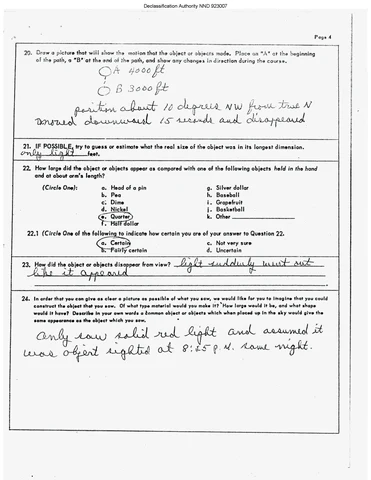 Declassification Authority NND 923007
Page 4
20. Draw a picture that will show the motion that the object or objects made. Place an "A" at the beginning
of the path, a "B" at the end of the path, and show any changes in direction during the course.
A 4000 ft
B 3000 ft
position about 10 degrees NW from true N
moved downward 15 seconds and disappeared
21. IF POSSIBLE, try to guess or estimate what the real size of the object was in its longest dimension.
only light feet.
22. How large did the object or objects appear as compared with one of the following objects held in the hand
and at about arm's length?
(Circle One): a. Head of a pin g. Silver dollar
b. Pea h. Baseball
c. Dime i. Grapefruit
d. Nickel j. Basketball
e. Quarter k. Other
f. Half dollar
22.1 (Circle One of the following to indicate how certain you are of your answer to Question 22.
a. Certain c. Not very sure
b. Fairly certain d. Uncertain
23. How did the object or objects disappear from view? light suddenly went out
like it appeared
24. In order that you can give as clear a picture as possible of what you saw, we would like for you to imagine that you could
construct the object that you saw. Of what type material would you make it? How large would it be, and what shape
would it have? Describe in your own words a common object or objects which when placed up in the sky would give the
same appearance as the object which you saw.
Only saw solid red light and assumed it
was object sighted at 8:25 P.M. same night.